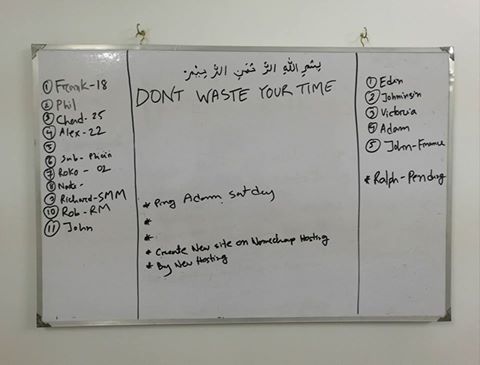 ① Frank-18
② Phil
③ Chad-25
④ Alex-22
⑤
⑥
⑦ Roko - 02
⑧ Nate-
⑨ Richard-SMM
⑩ Rob-RM
⑪ John
بِسْمِ اللهِ الرَّحْمٰنِ الرَّحِيْمِ
DONT WASTE YOUR TIME
* Ping Adam, Satday
*
*
* Create New site on Namecheap Hosting
* By New Hosting
① Eden
② Johninsin
③ Victoria
④ Adam
⑤ John-Finance
* Ralph-Pending